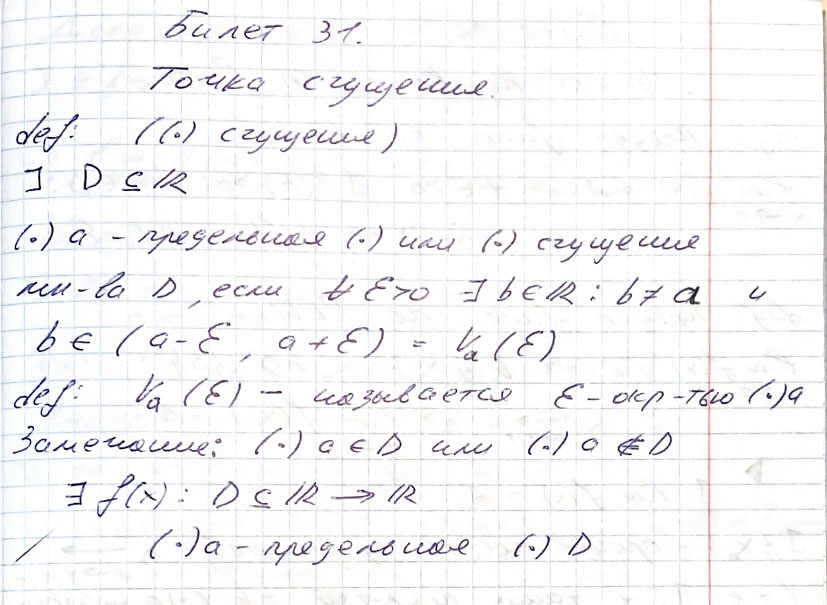 Билет 31.
Точка сгущения.
def: ((•) сгущения)
∃ D ⊆ ℝ
(•) a – предельная (•) или (•) сгущения
мн-ва D, если ∀ ℰ>0 ∃ b ∈ ℝ : b ≠ a и
b ∈ (a-ℰ, a+ℰ) = Vₐ(ℰ)
def: Vₐ(ℰ) – называется ℰ-окр-тью (•) a
Замечание: (•) a ∈ D или (•) a ∉ D
∃ f(x) : D ⊆ ℝ → ℝ
(•) a – предельная (•) D